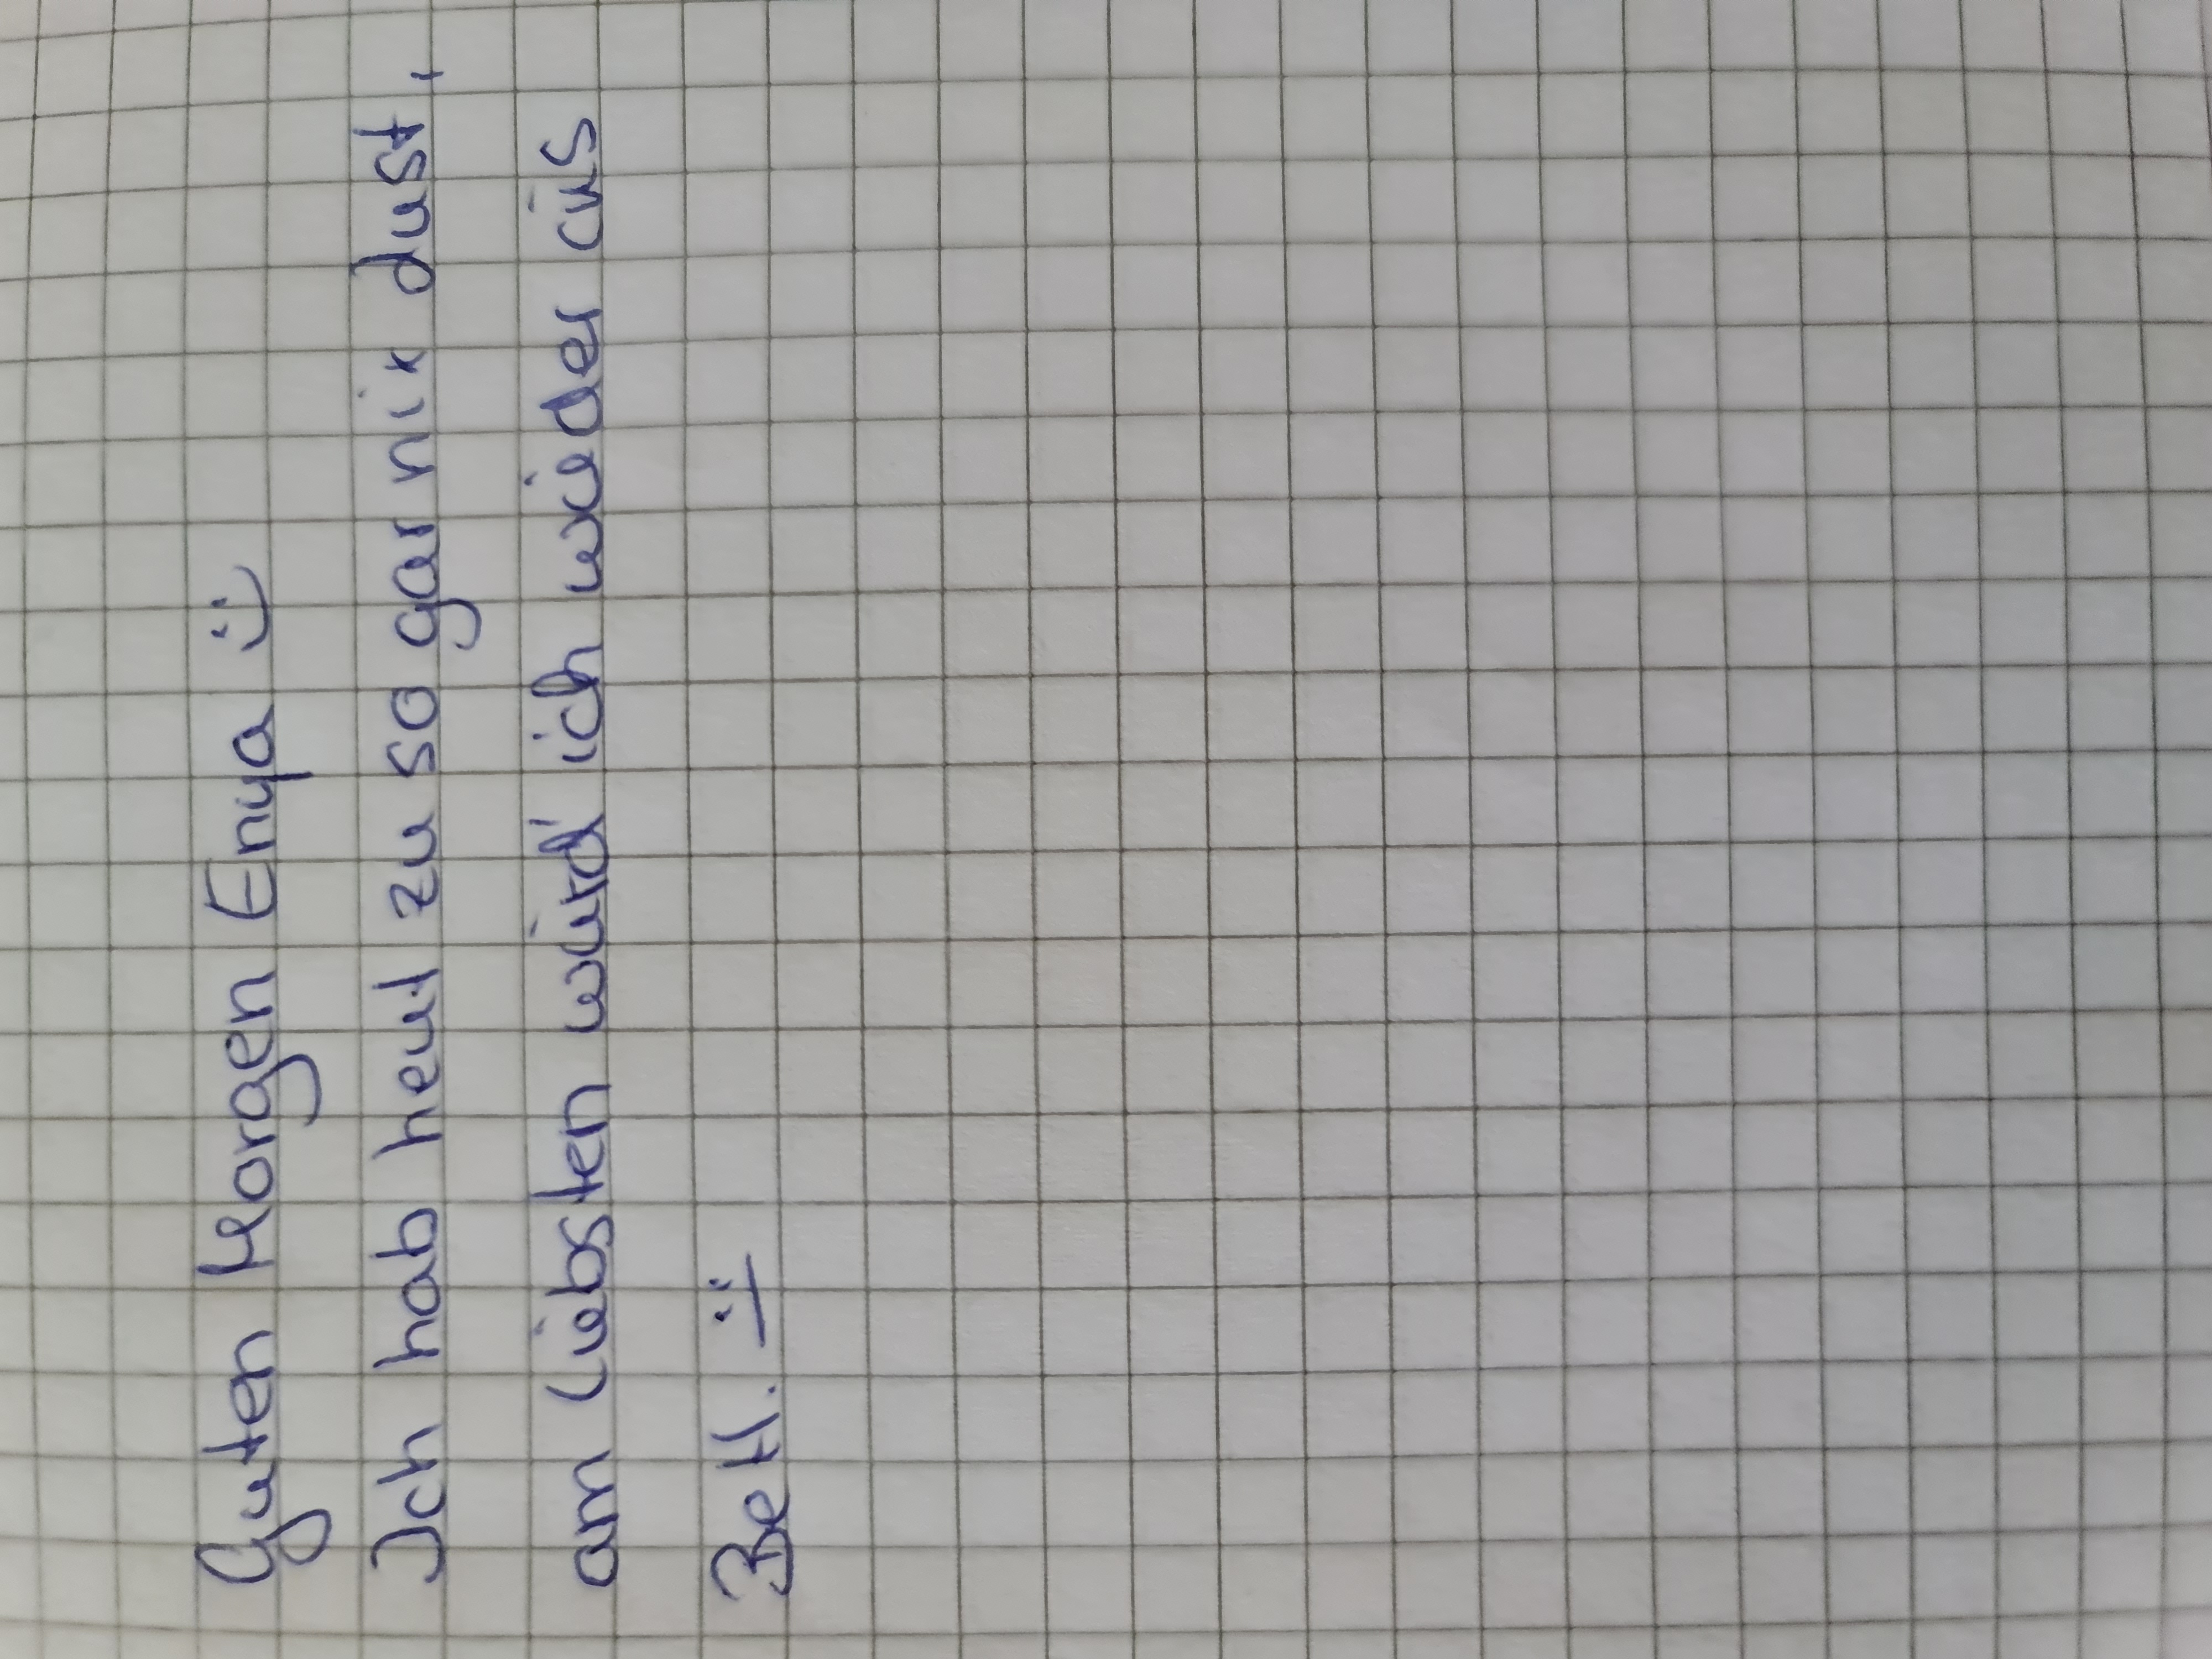 Guten Morgen Enya :)
Ich hab heut zu so gar nix dust,
am liebsten würd' ich wieder ins
Bett. :|